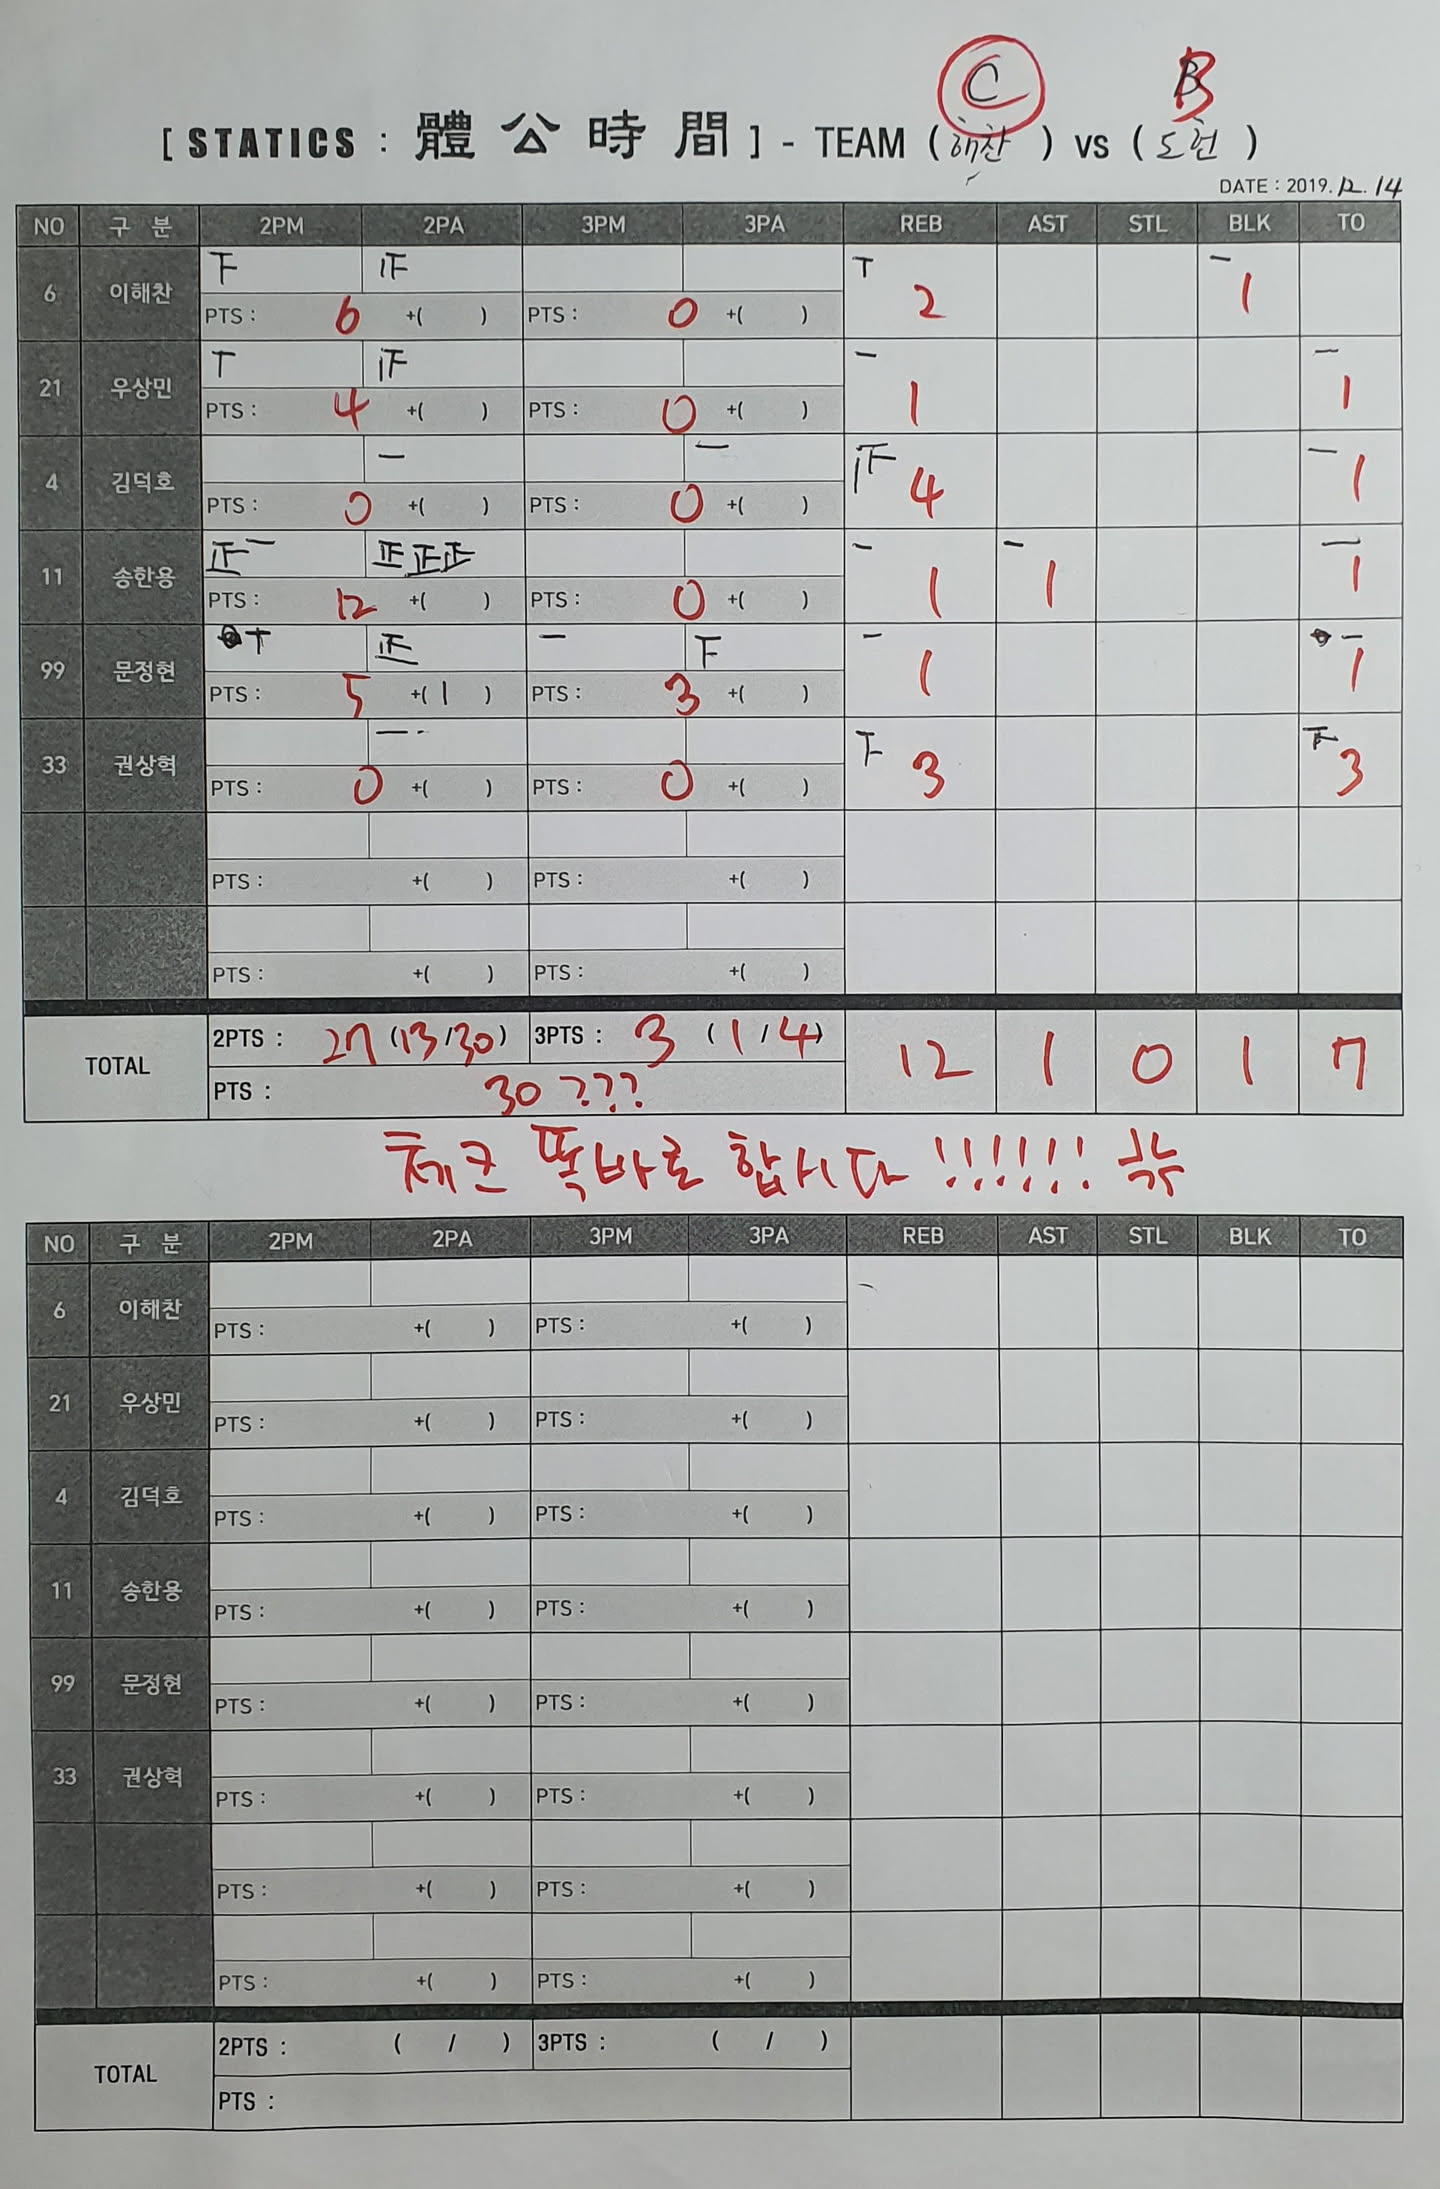 C B
[ STATICS : 體公時間 ] - TEAM ( 해찬 ) vs ( 도현 )
DATE : 2019. 12. 14
NO 구 분 2PM 2PA 3PM 3PA REB AST STL BLK TO
6 이해찬 下 正 T 2 一 1
PTS : 6 +( ) PTS : 0 +( )
21 우상민 T 正 一 1 一 1
PTS : 4 +( ) PTS : 0 +( )
4 김덕호 一 一 正 4 一 1
PTS : 0 +( ) PTS : 0 +( )
11 송한용 正一 正正正 一 1 一 1 一 1
PTS : 12 +( ) PTS : 0 +( )
99 문정현 T 正 一 下 一 1 一 1
PTS : 5 +( 1 ) PTS : 3 +( )
33 권상혁 一 下 3 下 3
PTS : 0 +( ) PTS : 0 +( )
PTS : +( ) PTS : +( )
PTS : +( ) PTS : +( )
TOTAL 2PTS : 27 (13/30) 3PTS : 3 (1/4) 12 1 0 1 7
PTS : 30 ???
체크 똑바로 합시다 !!!!!!
NO 구 분 2PM 2PA 3PM 3PA REB AST STL BLK TO
6 이해찬
PTS : +( ) PTS : +( )
21 우상민
PTS : +( ) PTS : +( )
4 김덕호
PTS : +( ) PTS : +( )
11 송한용
PTS : +( ) PTS : +( )
99 문정현
PTS : +( ) PTS : +( )
33 권상혁
PTS : +( ) PTS : +( )
PTS : +( ) PTS : +( )
PTS : +( ) PTS : +( )
TOTAL 2PTS : ( / ) 3PTS : ( / )
PTS :